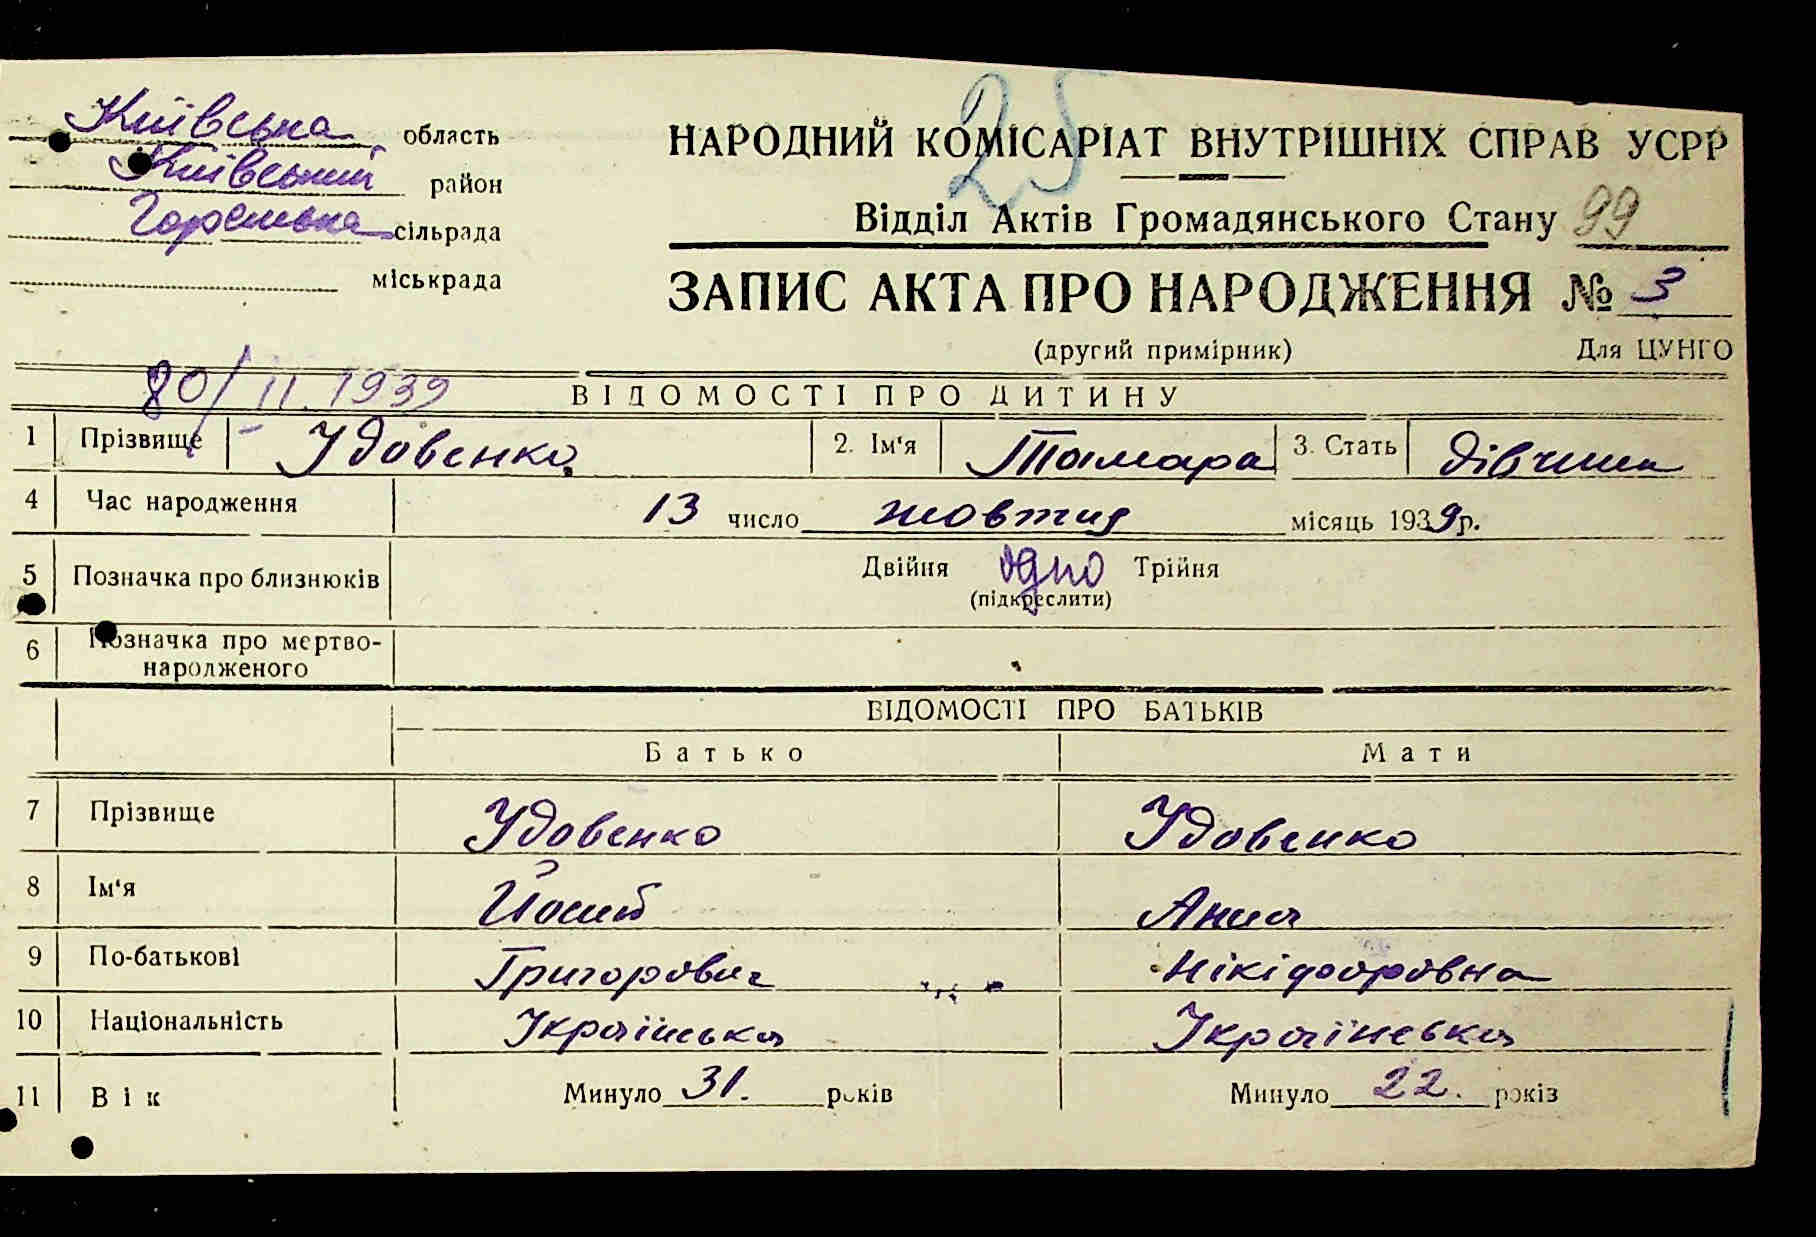 25
Київська область
Київський район
Горенська сільрада
міськрада
НАРОДНИЙ КОМІСАРІАТ ВНУТРІШНІХ СПРАВ УСРР
Відділ Актів Громадянського Стану 99
ЗАПИС АКТА ПРО НАРОДЖЕННЯ № 3
(другий примірник) Для ЦУНГО
20/II. 1939
ВІДОМОСТІ ПРО ДИТИНУ
1 Прізвище Удовенко 2. Ім'я Тамара 3. Стать дівчина
4 Час народження 13 число жовтня місяць 1939 р.
5 Позначка про близнюків Двійня одно Трійня
(підкреслити)
6 Позначка про мертво-
народженого
ВІДОМОСТІ ПРО БАТЬКІВ
Батько Мати
7 Прізвище Удовенко Удовенко
8 Ім'я Йосип Анна
9 По-батькові Григорович Нікіфоровна
10 Національність Українська Українська
11 Вік Минуло 31. років Минуло 22. років